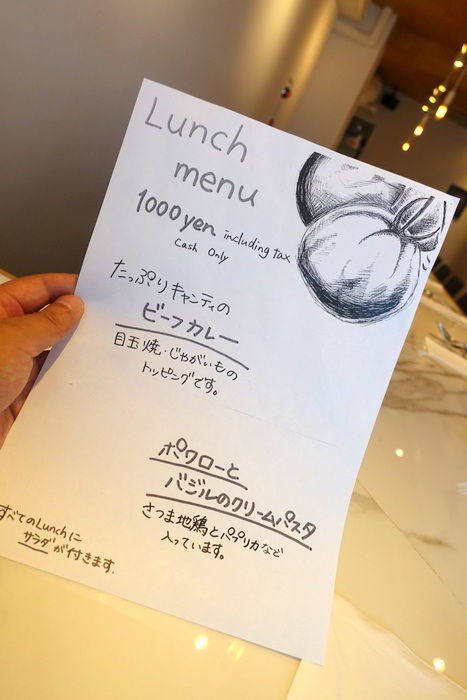 Lunch
menu
1000yen including tax
Cash Only
たっぷりキャンティの
ビーフカレー
目玉焼・じゃがいもの
トッピングです。
ポワローと
バジルのクリームパスタ
さつま地鶏とパプリカなど
入っています。
すべてのLunchに
サラダが付きます.